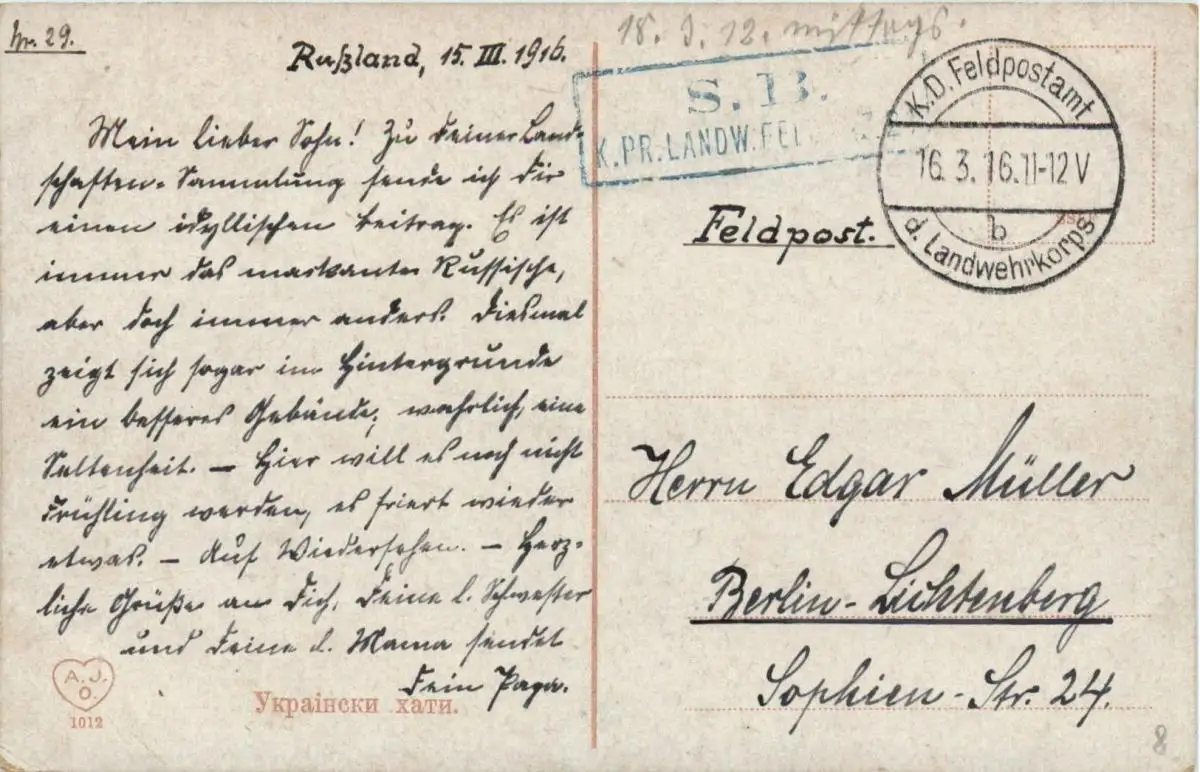 Nr. 29.
Rußland, 15. III. 1916.
Mein lieber Sohn! Zu Deiner Land-
schaften-Sammlung sende ich Dir
einen idyllischen Beitrag. Es ist
immer das markante Russische,
aber doch immer anders. Diesmal
zeigt sich sogar im Hintergrunde
ein besseres Gebäude; wahrlich, eine
Seltenheit. – Hier will es noch nicht
Frühling werden, es friert wieder
etwas. – Auf Wiedersehen. – Herz-
liche Grüße an Dich, Deine l. Schwester
und Deine l. Mama sendet
Dein Papa.
A. J.
O.
1012
Українски хати.
18. 3. 12. mittags.
S. B.
K. PR. LANDW. FEL
K.D. Feldpostamt
16. 3. 16. 11-12 V
b
d. Landwehrkorps
Feldpost.
Herrn Edgar Müller
Berlin-Lichtenberg
Sophien-Str. 24.
8